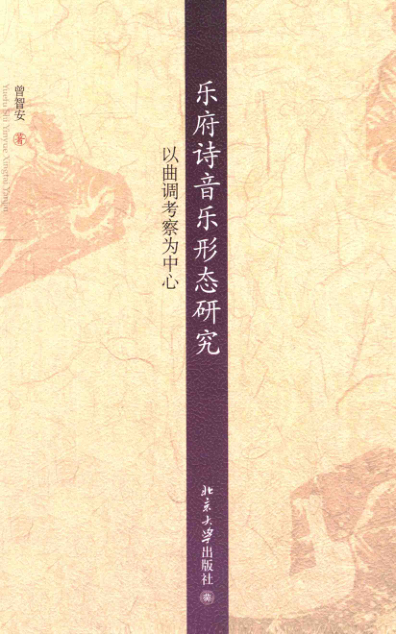 乐府诗音乐形态研究
以曲调考察为中心
曾智安 著
Yuefu Shi Yinyue Xingtai Yanjiu
北京大学出版社